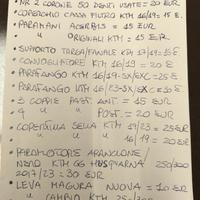 • NR 2 CORONE 50 DENTI USATE = 20 EUR
• COPERCHIO CASSA FILTRO KTM 16/19 = 15 E.
• PARAMANI ACERBIS = 15 EUR
• " ORIGINALI KTM = 15 EUR
• SUPPORTO TARGA/FANALE KTM 17/19 = 15 E
• CONVOGLIATORE KTM 16/19 = 20 E
• PARAFANGO KTM 16/19-SX/EXC = 25 E
• PARAFANGO KTM 16/23-SX/EXC =
• 3 COPPIE PAST. ANT = 15 EUR
• 4 " " POST. = 20 EUR
• COPERTINA SELLA KTM 19/23 = 25 EUR
• " " " 16/19 = 20 EUR
• PARAMOTORE ARANCIONE/
NERO KTM GG HUSQVARNA 250/300
2017/23 = 30 EUR
• LEVA MAGURA NUOVA = 10 EUR
• " CAMBIO KTM 250/300